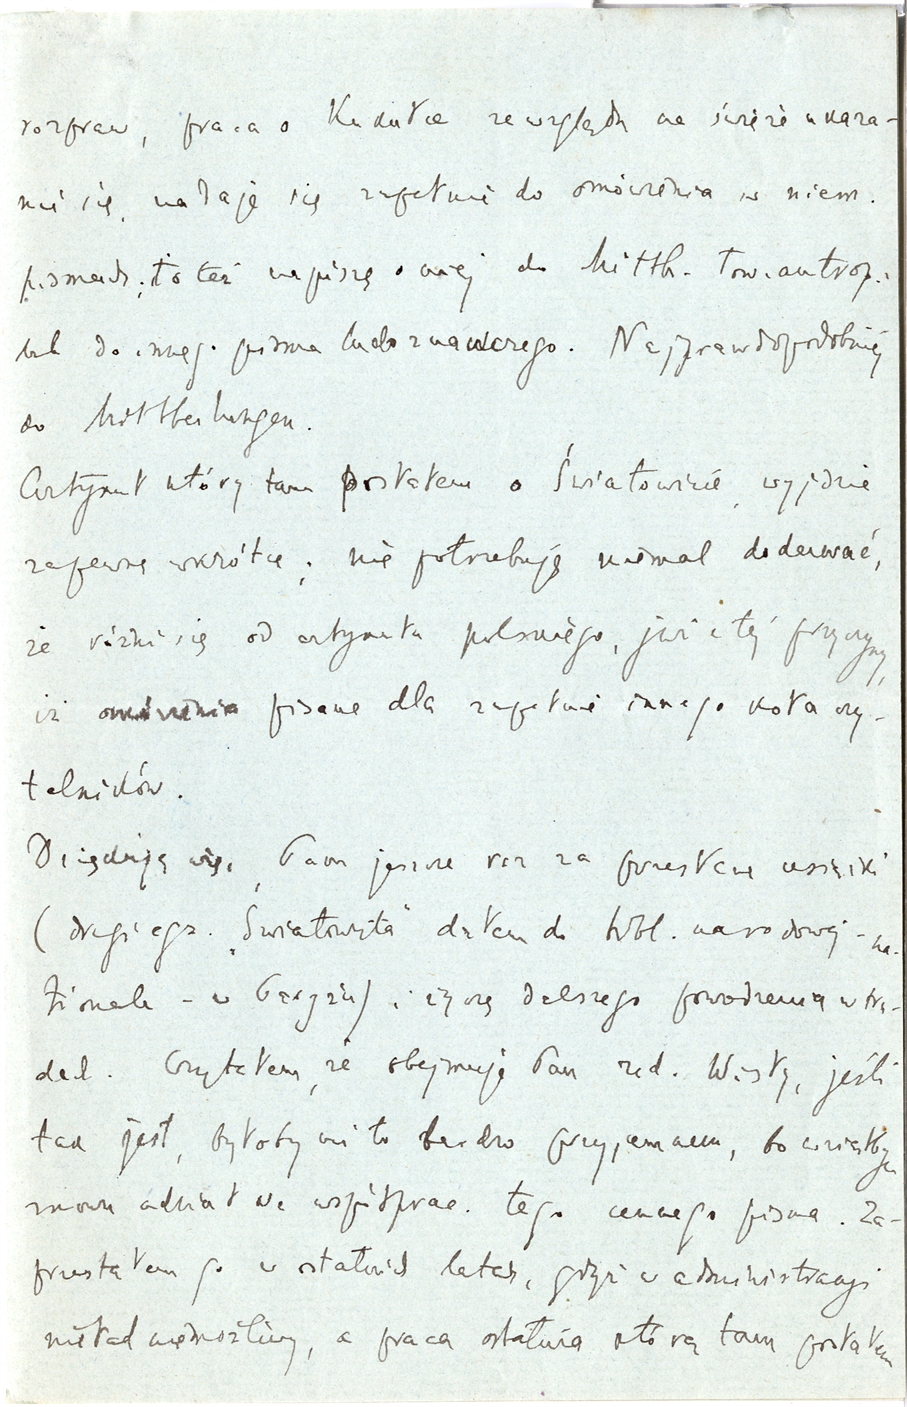 rozpraw, praca o Kukułce ze względu na świeże ukaza-
nie się, nadaje się zupełnie do omówienia w niem.
pismach, to też napiszę o niej do Mitth. Tow. antrop.
lub do innego pisma ludoznawczego. Najprawdopodobniej
do Mittheilungen.
Artykuł który tam posłałem o Światowicie, wyjdzie
zapewne wkrótce; nie potrzebuję niemal dodawać,
że różni się od artykułu polskiego, już z tej przyczyny,
iż pisane dla zupełnie innego koła czy-
telników.
Dziękuję więc Panu jeszcze raz za przesłane książki
(drugi egz. „Światowita" dałem do bibl. narodowej - na-
tionale - w Paryżu) i życzę dalszego powodzenia w tru-
dach. Czytałem, że obejmuje Pan red. Wisły, jeśli
tak jest, byłoby mi to bardzo przyjemnem, bo wziąłbym
znowu udział we współprac. tego cennego pisma. Za-
przestałem go w ostatnich latach, gdyż w administracji
nieład niemożliwy, a praca ostatnia którą tam posłałem